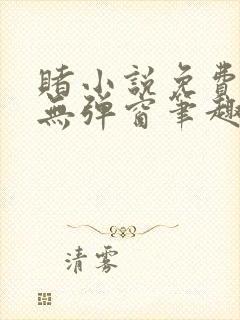 賭小説免費
無彈窗筆趣
清雾